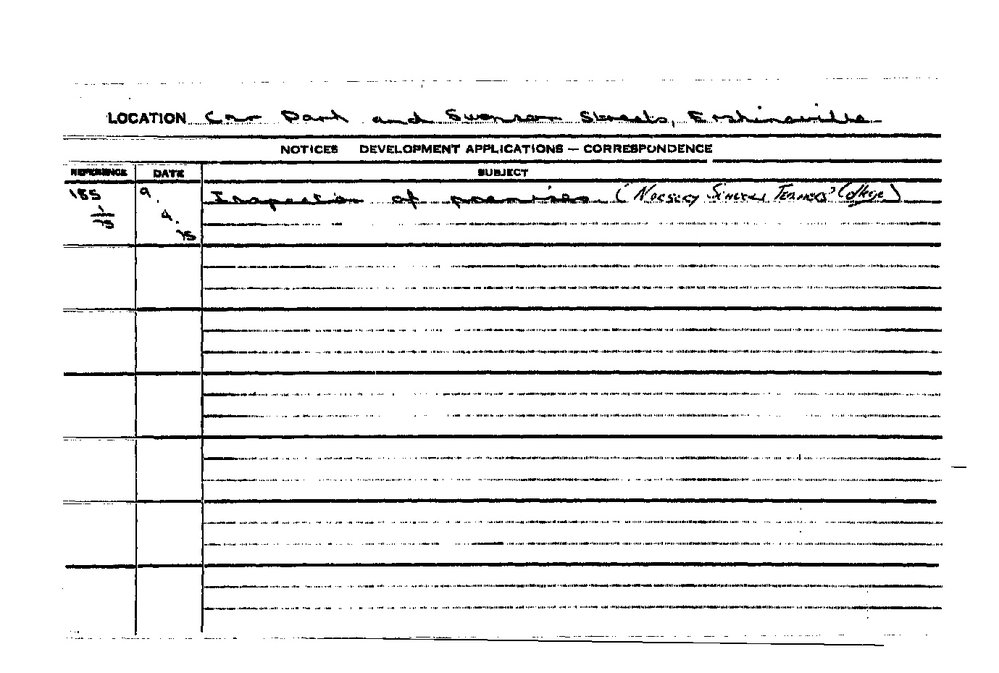 LOCATION Cnr Park and Swanson Streets, Erskineville
NOTICES DEVELOPMENT APPLICATIONS — CORRESPONDENCE
REFERENCE DATE SUBJECT
185 9. Inspection of premises. (Nursery School Teachers' College)
1 4.
75 75